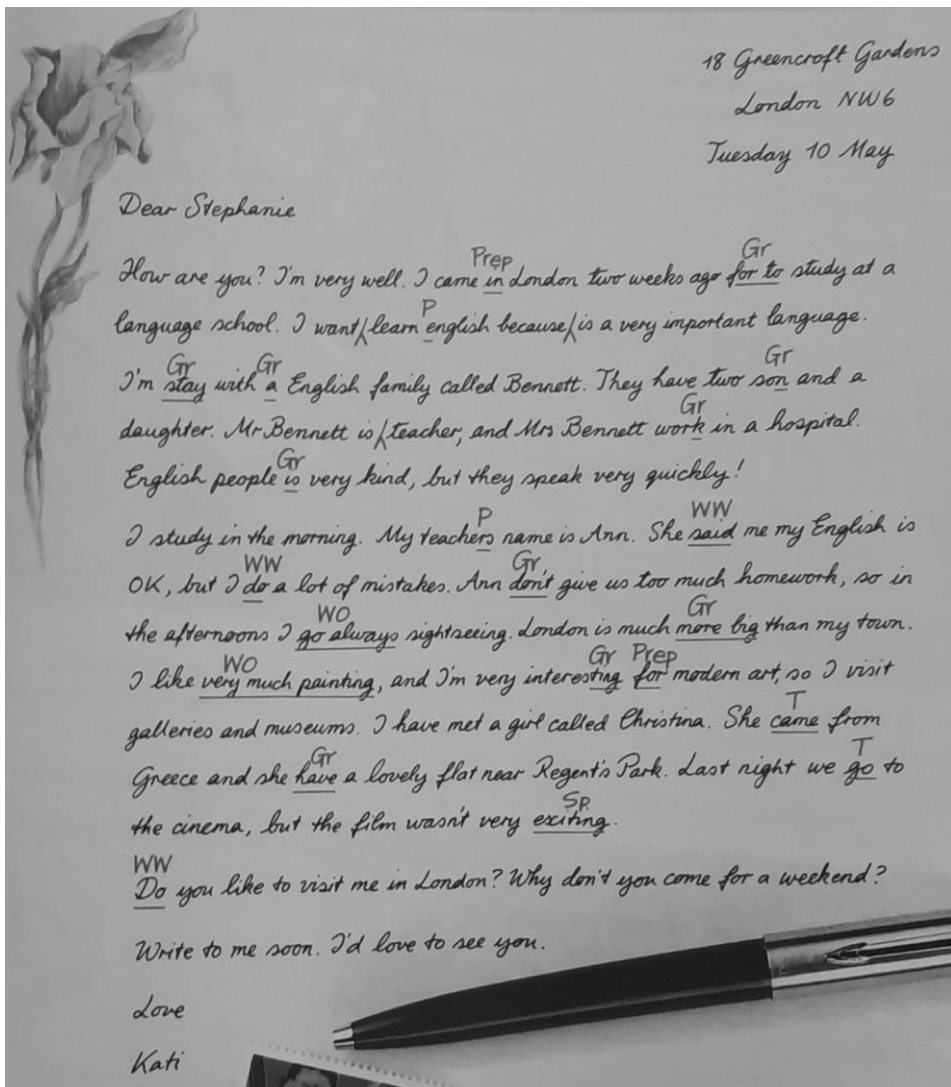 18 Greencroft Gardens
London NW6
Tuesday 10 May
Dear Stephanie
Prep Gr
How are you? I'm very well. I came in London two weeks ago for to study at a
P
language school. I want learn english because is a very important language.
Gr Gr Gr
I'm stay with a English family called Bennett. They have two son and a
Gr
daughter. Mr Bennett is teacher, and Mrs Bennett work in a hospital.
Gr
English people is very kind, but they speak very quickly!
P WW
I study in the morning. My teachers name is Ann. She said me my English is
WW Gr
OK, but I do a lot of mistakes. Ann don't give us too much homework, so in
WO Gr
the afternoons I go always sightseeing. London is much more big than my town.
WO Gr Prep
I like very much painting, and I'm very interesting for modern art, so I visit
T
galleries and museums. I have met a girl called Christina. She came from
Gr T
Greece and she have a lovely flat near Regent's Park. Last night we go to
Sp
the cinema, but the film wasn't very exiting.
WW
Do you like to visit me in London? Why don't you come for a weekend?
Write to me soon. I'd love to see you.
Love
Kati